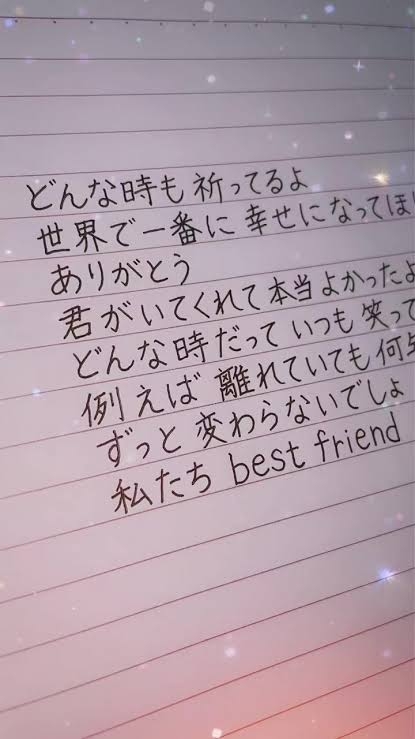 どんな時も祈ってるよ
世界で一番に幸せになってほ
ありがとう
君がいてくれて本当よかったよ
どんな時だっていつも笑って
例えば離れていても何
ずっと変わらないでしょ
私たち best friend